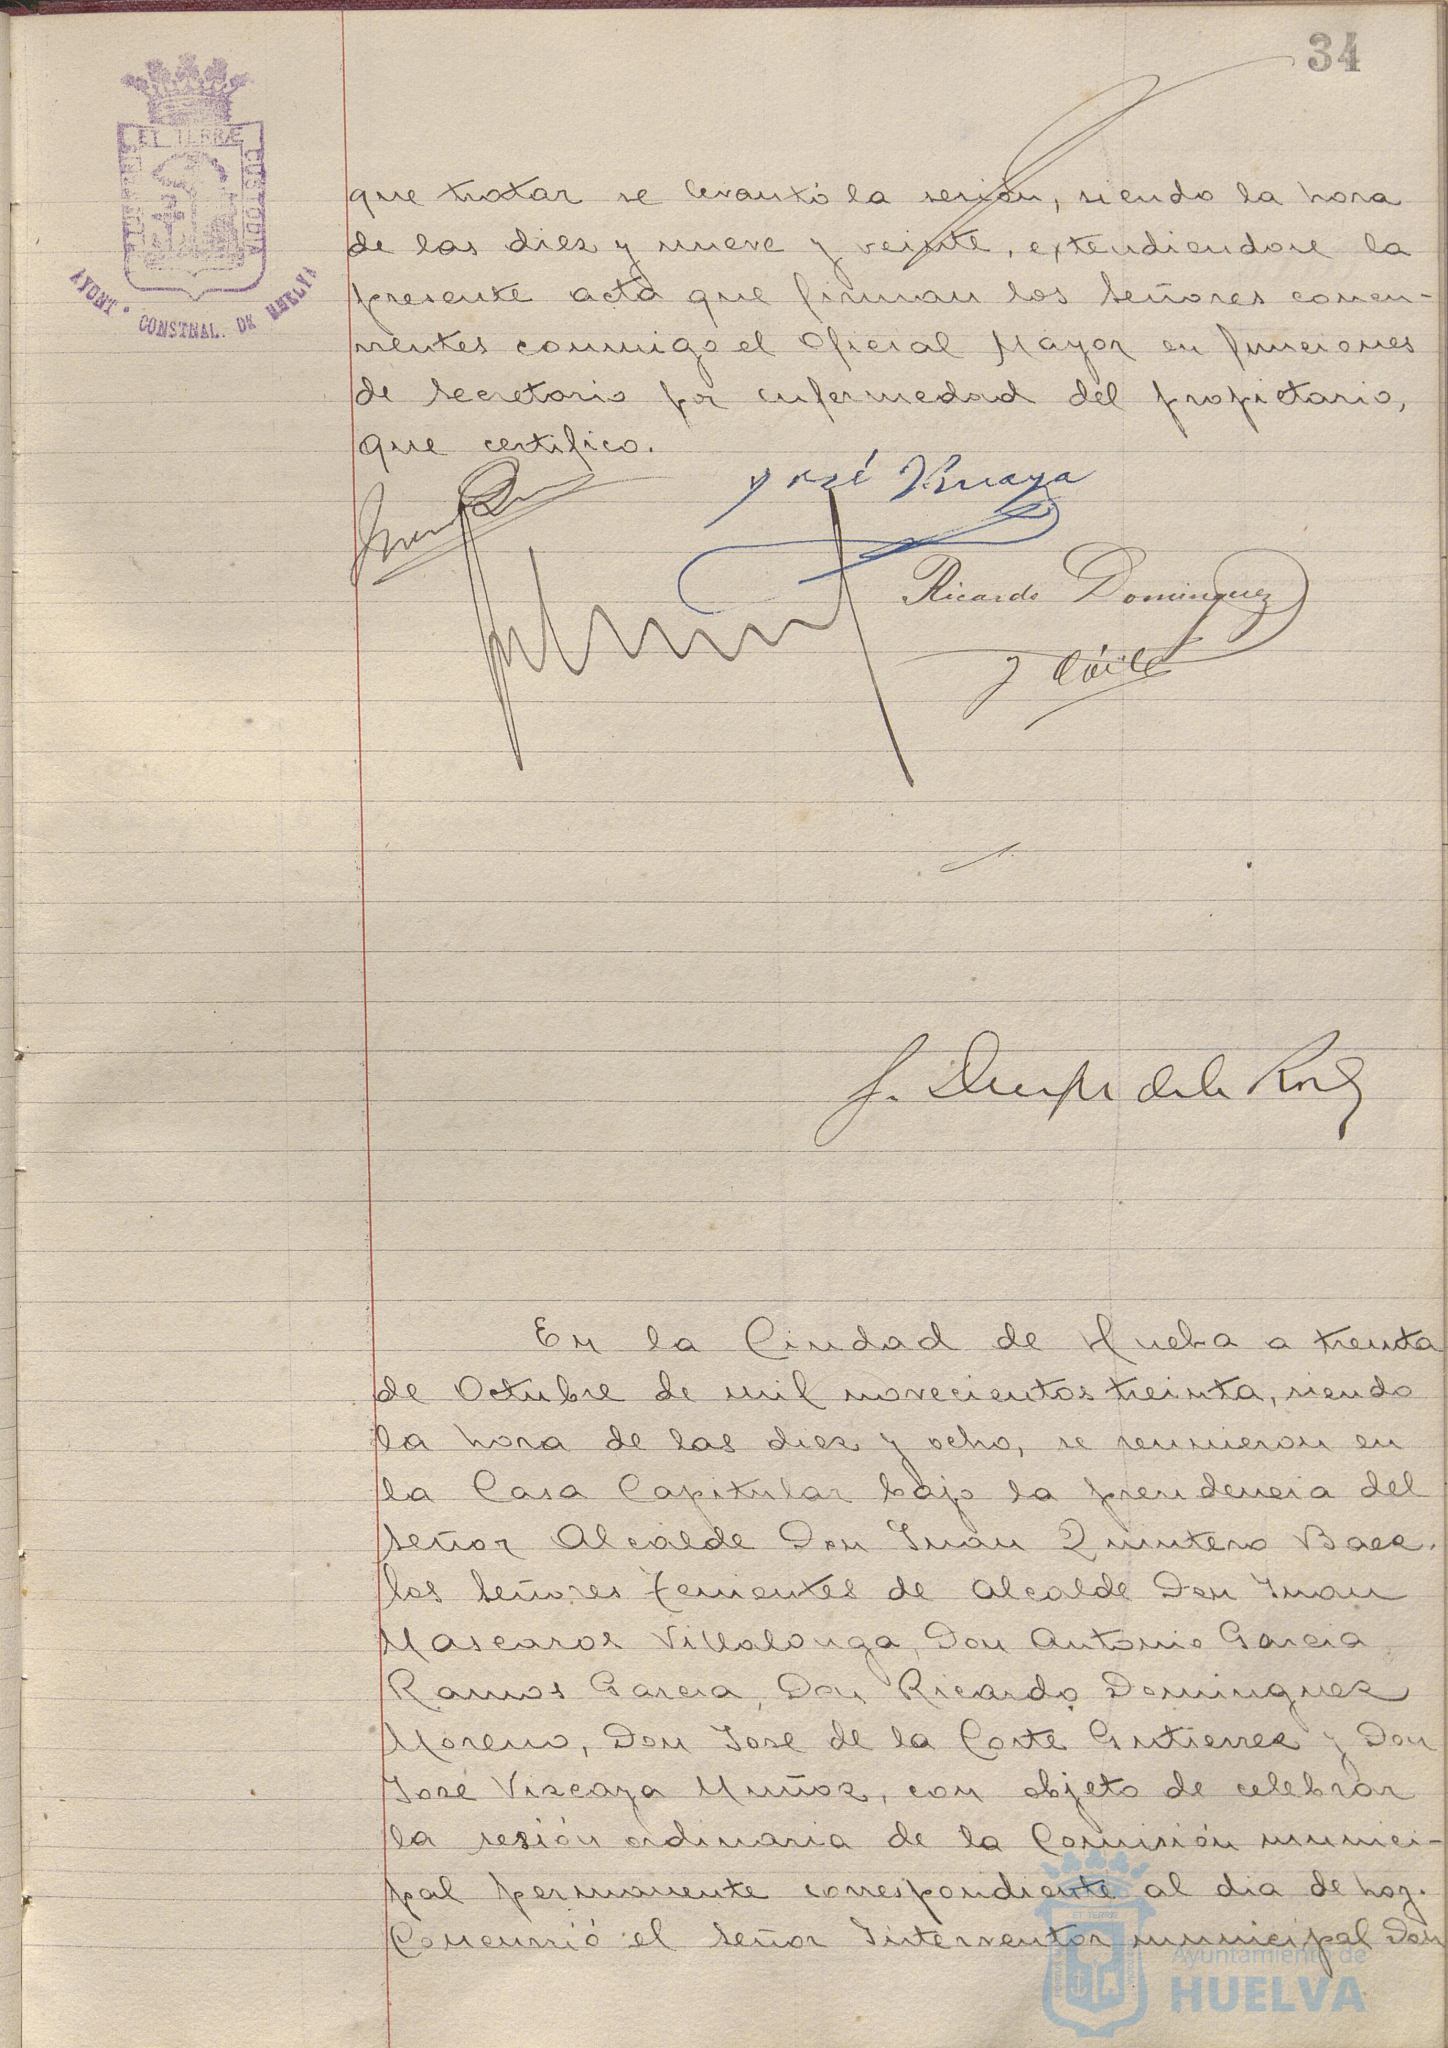 34
ET TERRÆ
CUSTODIA
AYONT° CONSTNAL. DE HUELVA
que tratar se levantó la sesión, siendo la hora
de las diez y nueve y veinte, extendiendose la
presente acta que firman los Señores concu-
rrentes conmigo el Oficial Mayor en funciones
de Secretario por enfermedad del propietario,
que certifico.
José Vizcaya
Ricardo Dominguez
En la Ciudad de Huelva a treinta
de Octubre de mil novecientos treinta, siendo
la hora de las diez y ocho, se reunieron en
la Casa Capitular bajo la presidencia del
Señor Alcalde Don Juan Quintero Baez.
los Señores Tenientes de Alcalde Don Juan
Mascaros Villalonga, Don Antonio Garcia
Ramos Garcia, Don Ricardo Dominguez
Moreno, Don José de la Corte Gutierrez y Don
José Vizcaya Muñoz, con objeto de celebrar
la sesión ordinaria de la Comisión munici-
pal permanente correspondiente al dia de hoy.
Concurrió el Señor Interventor municipal Don
Ayuntamiento de
HUELVA